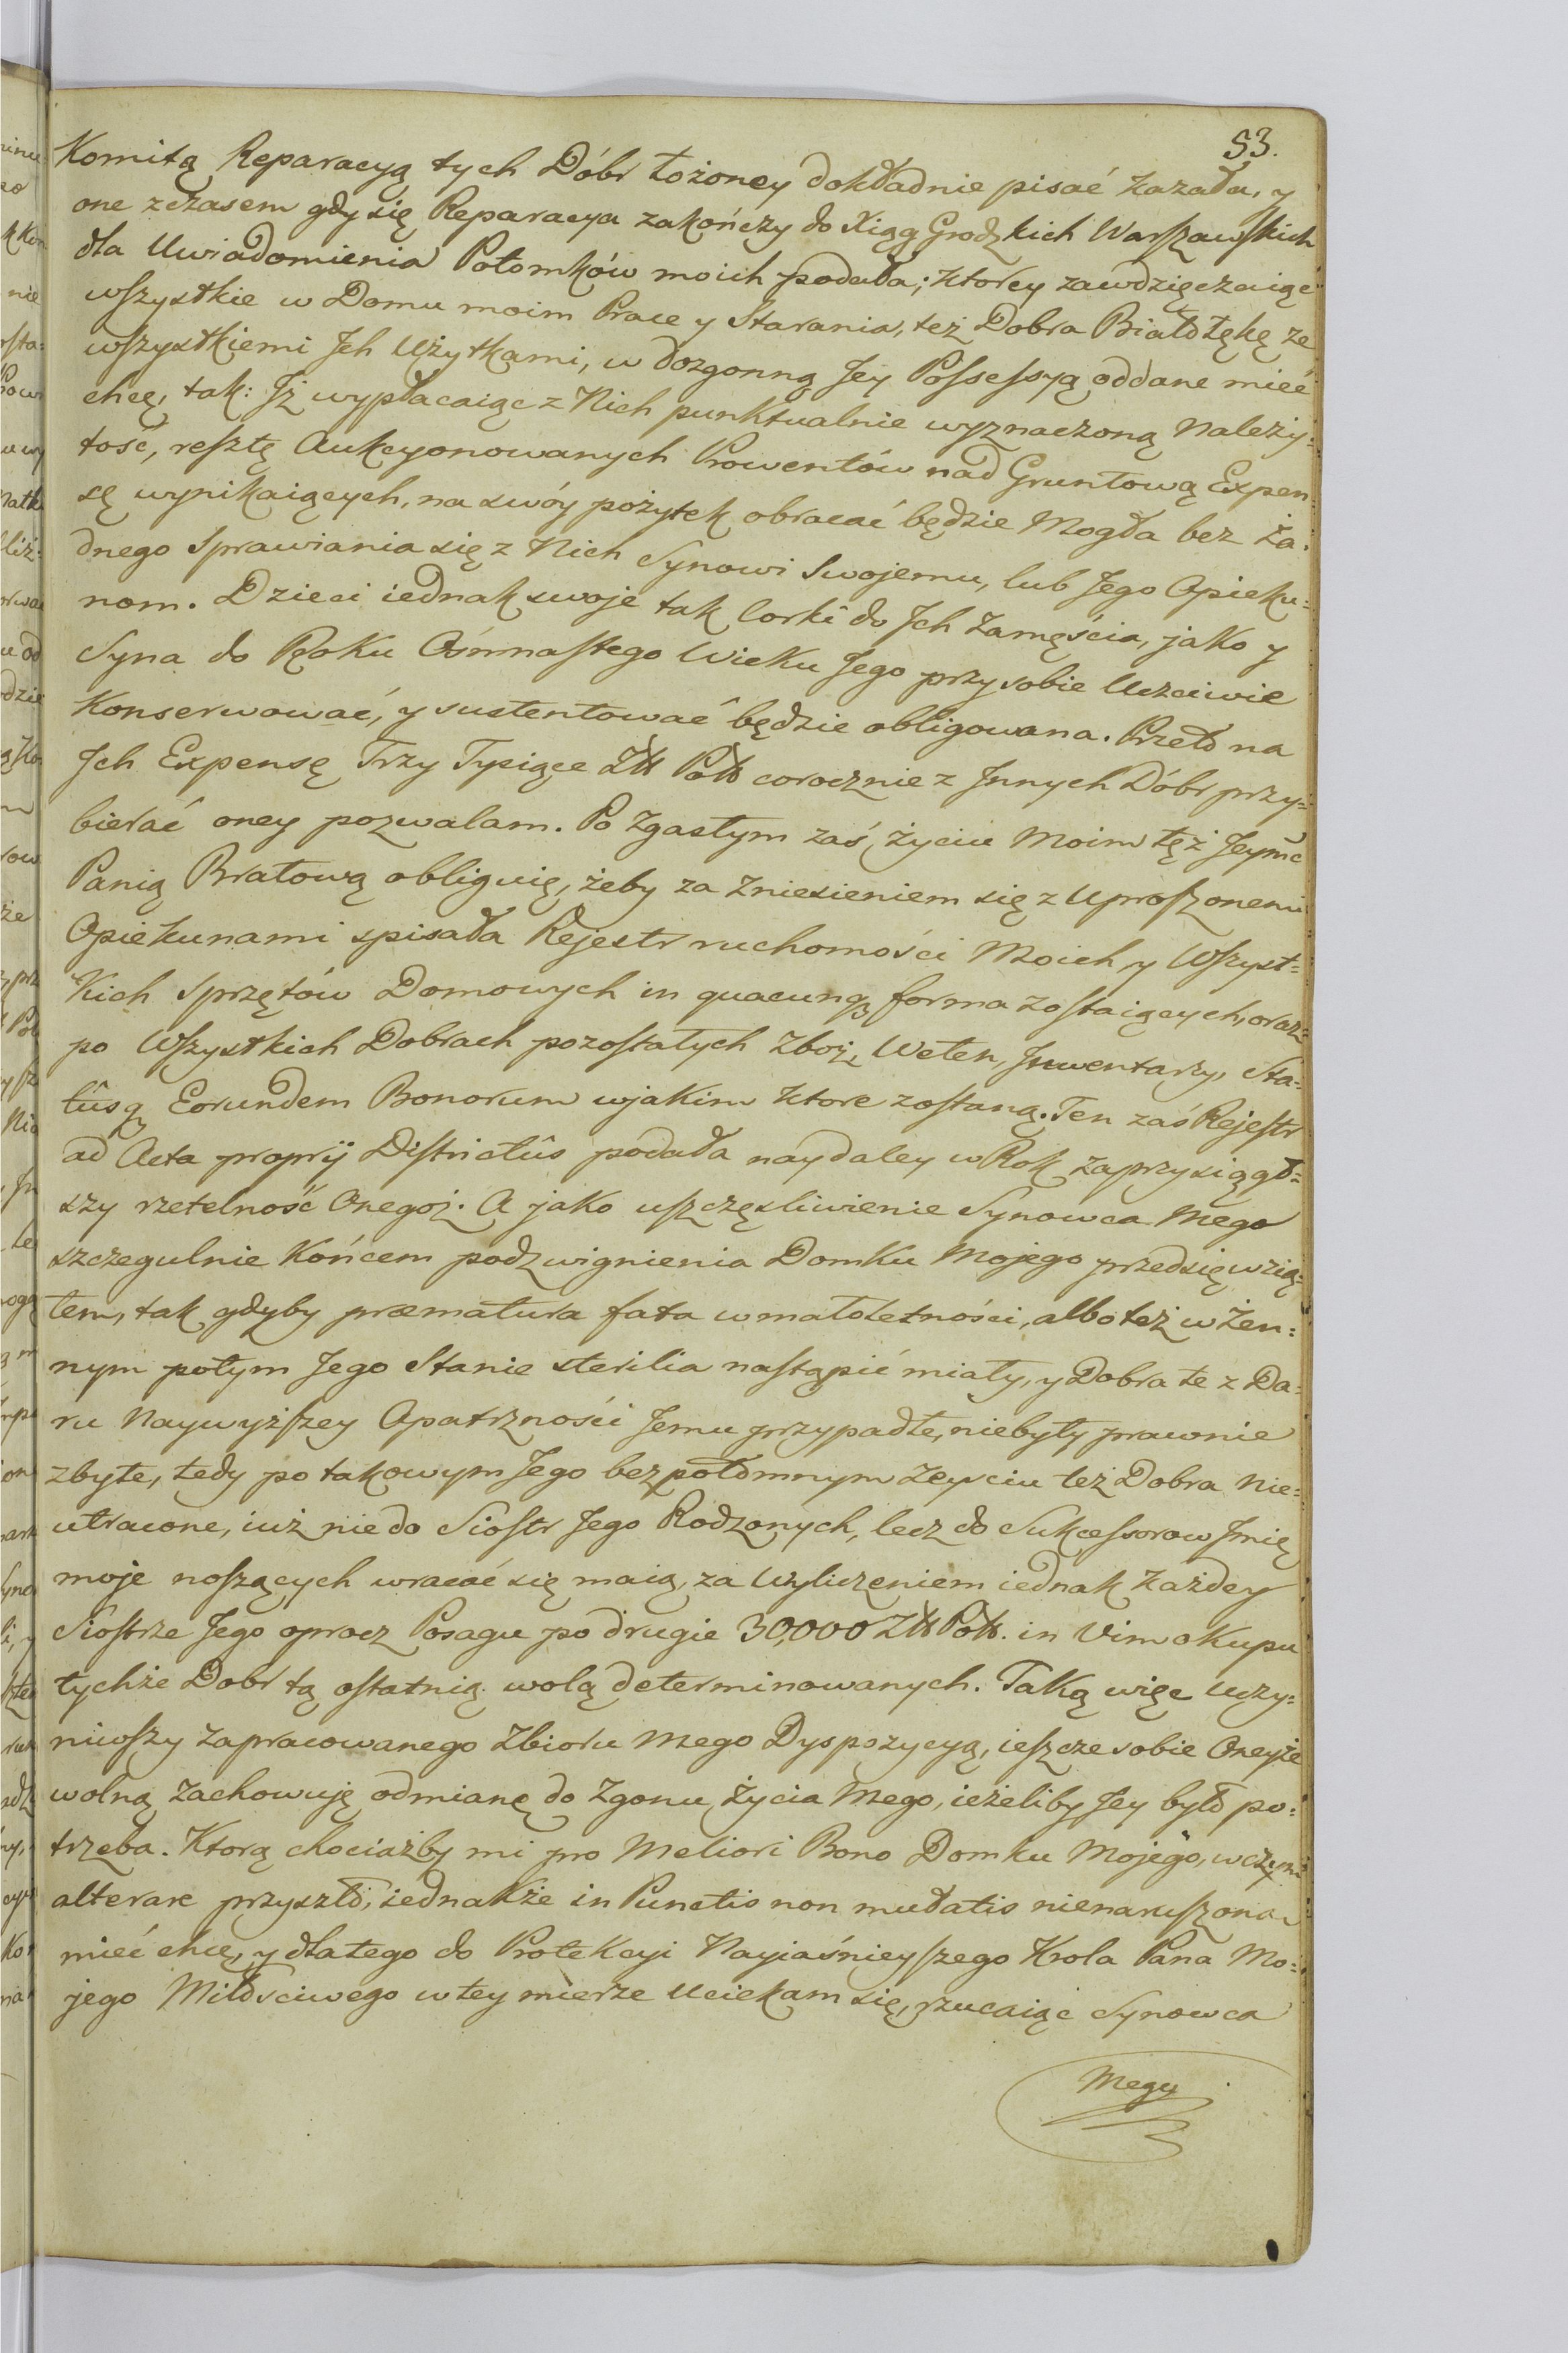 53.
Komitą Reparacyą tych Dóbr łożoney dokładnie pisać kazała, y
one zczasem gdy się Reparacya zakończy do Xiąg Grodzkich Warszawskich
dla Uwiadomienia Potomków moich podała; ktorey zawdzięczaiąc
wszystkie w Domu moim Prace y Starania, też Dobra Białołękę ze
wszystkiemi Jch Użytkami, w dozgonną Jey Possessyą oddane mieć
chcę, tak: Jż wypłacaiąc z Nich punktualnie wyznaczoną Należy=
tość, resztę Aukcyonowanych Prowentów nad Gruntową Expen=
sę wynikaiących, na swóy pożytek obracać będzie Mogła bez ża=
dnego Sprawiania się z Nich Synowi Swojemu, lub Jego Opieku=
nom. Dzieci iednak swoje tak Corki do Jch Zamęścia, jako y
Syna do Roku Ośmnastego Wieku Jego przy sobie Uczciwie
Konserwować, y sustentować będzie obligowana. Przeto na
Jch Expensę Trzy Tysiące Złł Połł corocznie z Jnnych Dóbr przy=
bierać oney pozwalam. Po Zgasłym zaś życiu Moim tęż Jeymć
Panią Bratową obliguię, żeby za Zniesieniem się z Uproszonemi
Opiekunami spisała Rejestr ruchomości Moich y Wszyst=
kich Sprzętów Domowych in quacunq; forma zostaiących, oraz
po Wszystkich Dobrach pozostałych Zboż, Weten, Jnwentarzy, Sta=
tûsq; Eorundem Bonorum wjakim ktore zostaną. Ten zaś Rejestr
ad Acta proprij Districtûs podała naydaley w Rok zaprzysiągł=
szy rzetelność Onegoż. A jako uszczęsliwienie Synowca Mego
szczegulnie Końcem podzwignienia Domku Mojego przedsięwzią=
łem, tak gdyby præmatura fata w małoletności, albo też w Żen=
nym potym Jego Stanie sterilia nastąpić miały, y Dobra te z Da=
ru Naywyższey Opatrzności Jemu przypadłe, niebyły prawnie
zbyte, tedy po takowym Jego bezpotomnym Zeyściu też Dobra Nie=
utracone, iuż nie do Siostr Jego Rodzonych, lecz do Sukcessorow Jmię
moje noszących wracać się maią, za Wyliczeniem iednak Każdey
Siostrze Jego oprocz Posagu po drugie 30,000 Złł Połł. in Vim okupu
tychże Dobr tą ostatnią wolą determinowanych. Taką więc Uczy=
niwszy Zapracowanego Zbioru Mego Dyspozycyą, ieszcze sobie Oneyże
wolną Zachowuję odmianę do Zgonu Życia Mego, ieżeliby Jey było po=
trzeba. Ktorą chociażby mi pro Meliori Bono Domku Mojego, w czym
alterare przyszło, iednakże in Punctis non mutatis nienaruszoną
mieć chcę, y dlatego do Protekcyi Nayjaśnieyszego Krola Pana Mo=
jego Miłościwego w tey mierze Uciekam się, rzucaiąc Synowca
Mego